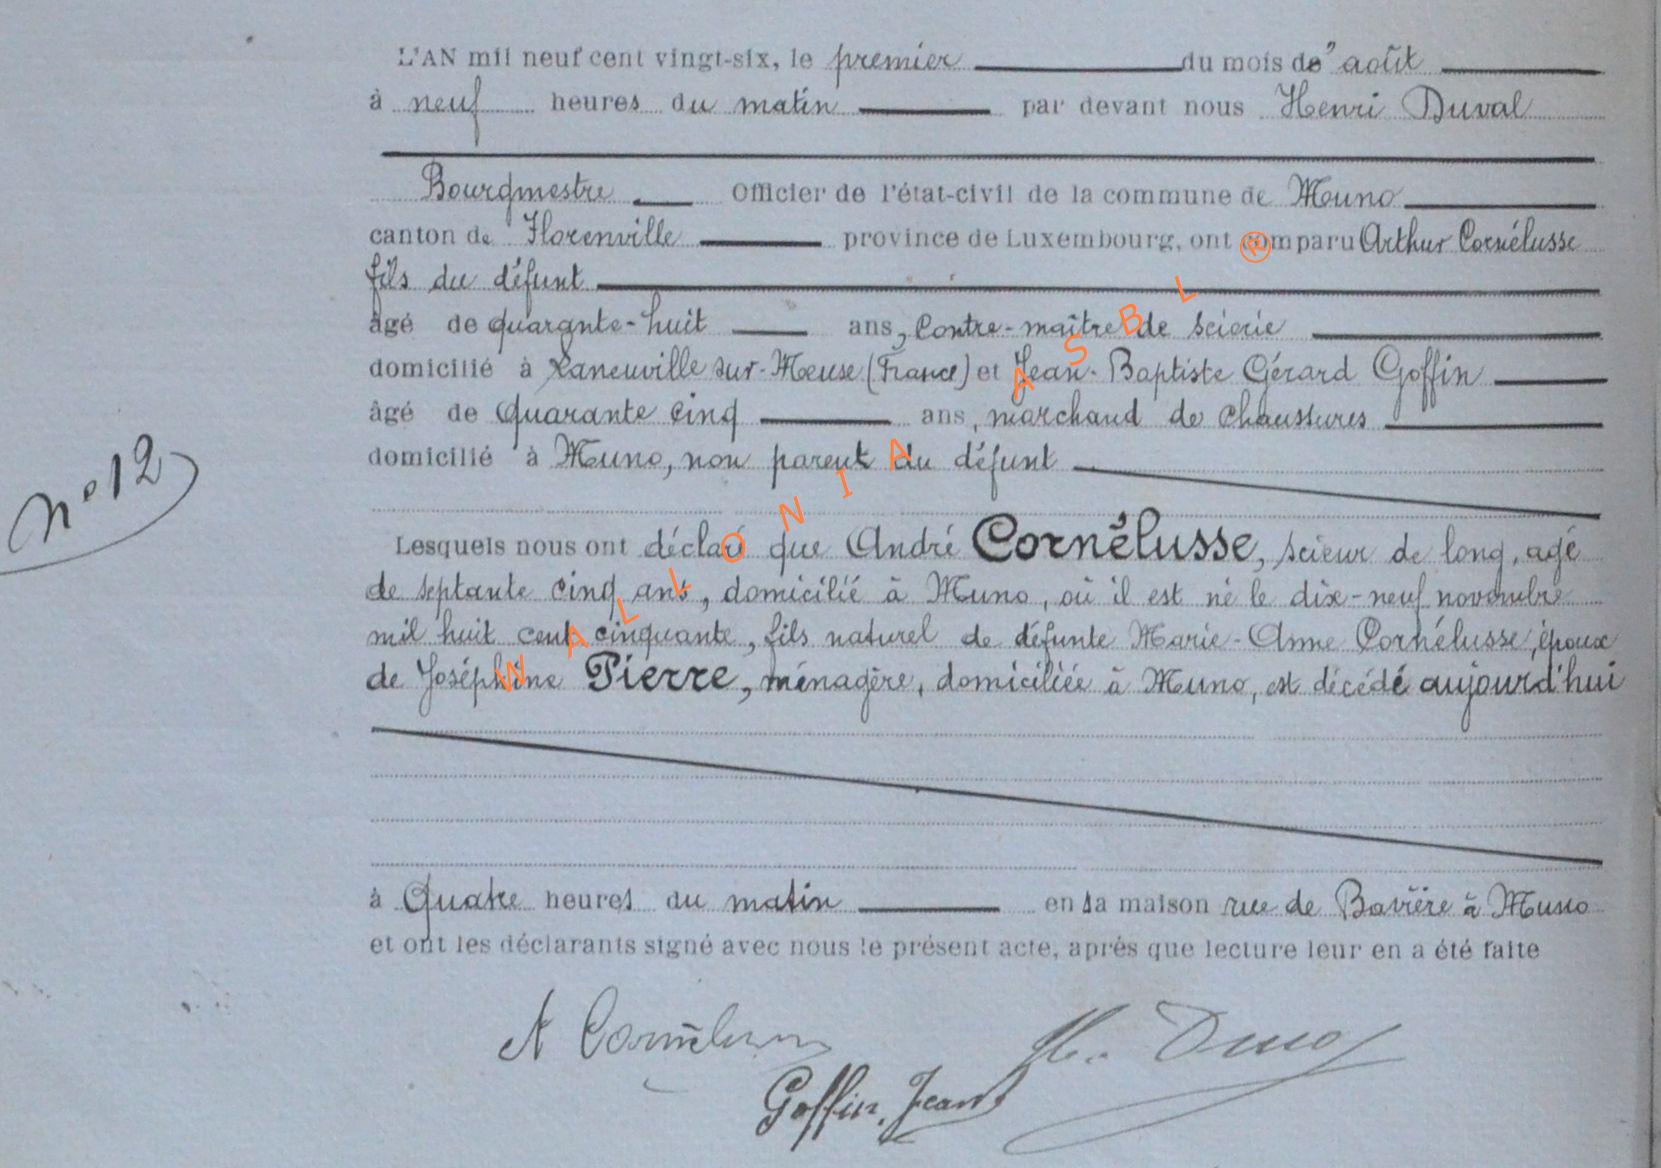 L'AN mil neuf cent vingt-six, le premier du mois d'août
à neuf heures du matin par devant nous Henri Duval
Bourgmestre Officier de l'état-civil de la commune de Muno
canton de Florenville province de Luxembourg, ont comparu Arthur Cornélusse
fils du défunt
âgé de quarante-huit ans, Contre-maître de scierie
domicilié à Laneuville sur-Meuse (France) et Jean-Baptiste Gérard Goffin
âgé de quarante cinq ans, marchand de chaussures
domicilié à Muno, non parent du défunt
n° 12
Lesquels nous ont déclaré que André Cornélusse, scieur de long, agé
de septante cinq ans, domicilié à Muno, où il est né le dix-neuf novembre
mil huit cent cinquante, fils naturel de défunte Marie-Anne Cornélusse, époux
de Joséphine Pierre, ménagère, domiciliée à Muno, est décédé aujourd'hui
à Quatre heures du matin en sa maison rue de Bavière à Muno
et ont les déclarants signé avec nous le présent acte, après que lecture leur en a été faite
A Cornélusse
Goffin, Jean
WALLONIA ASBL ®